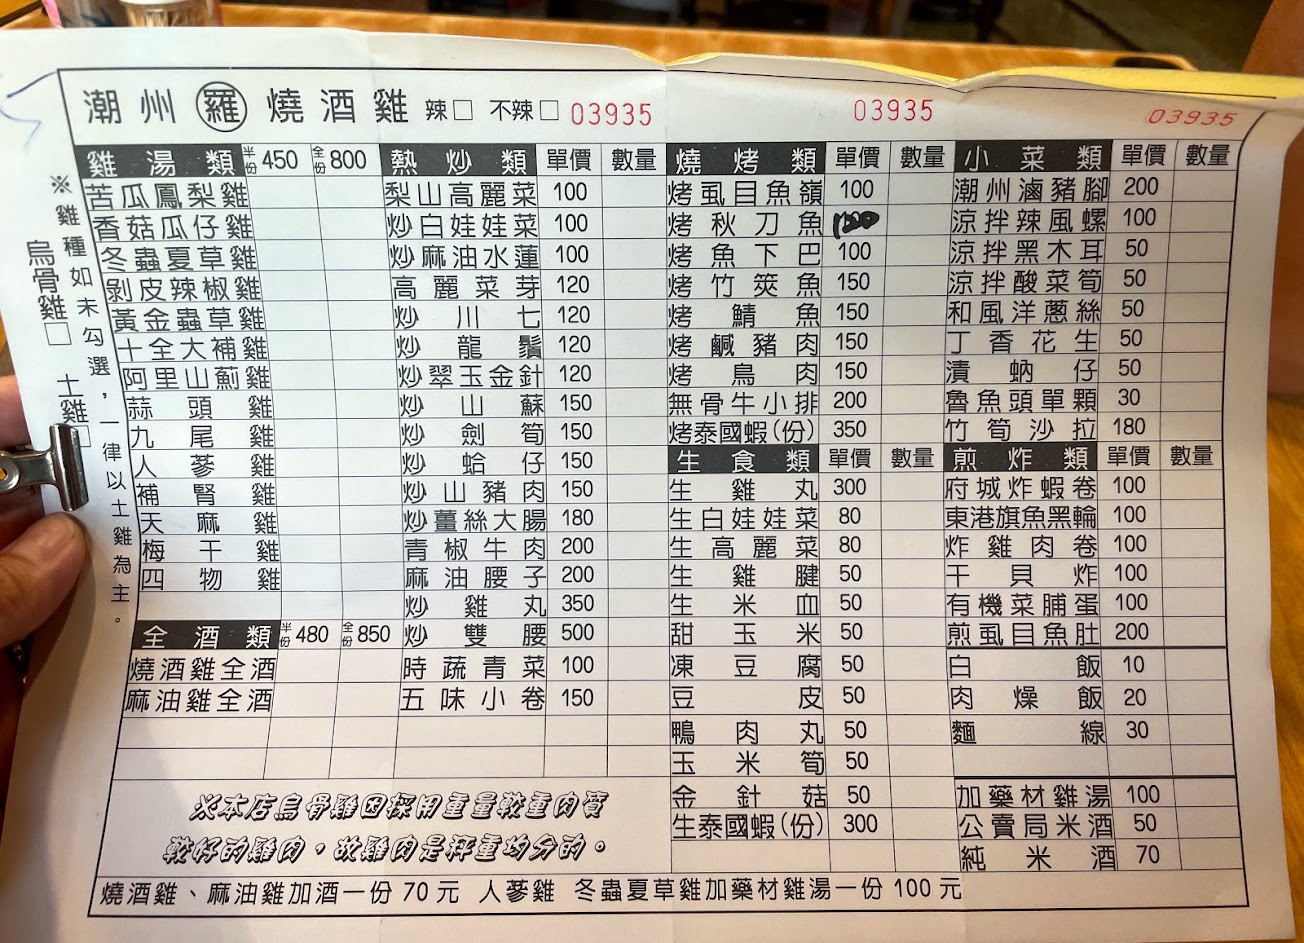 潮州羅燒酒雞 辣□ 不辣□ 03935 03935 03935
※雞種如未勾選，一律以土雞為主。
烏骨雞□ 土雞□
雞湯類 半份450 全份800
苦瓜鳳梨雞
香菇瓜仔雞
冬蟲夏草雞
剝皮辣椒雞
黃金蟲草雞
十全大補雞
阿里山薊雞
蒜頭雞
九尾雞
人蔘雞
補腎雞
天麻雞
梅干雞
四物雞
全酒類 半份480 全份850
燒酒雞全酒
麻油雞全酒
熱炒類 單價 數量
梨山高麗菜 100
炒白娃娃菜 100
炒麻油水蓮 100
高麗菜芽 120
炒川七 120
炒龍鬚 120
炒翠玉金針 120
炒山蘇 150
炒劍筍 150
炒蛤仔 150
炒山豬肉 150
炒薑絲大腸 180
青椒牛肉 200
麻油腰子 200
炒雞丸 350
炒雙腰 500
時蔬青菜 100
五味小卷 150
燒烤類 單價 數量
烤虱目魚嶺 100
烤秋刀魚
烤魚下巴 100
烤竹筴魚 150
烤鯖魚 150
烤鹹豬肉 150
烤鳥肉 150
無骨牛小排 200
烤泰國蝦(份) 350
生食類 單價 數量
生雞丸 300
生白娃娃菜 80
生高麗菜 80
生雞腱 50
生米血 50
甜玉米 50
凍豆腐 50
豆皮 50
鴨肉丸 50
玉米筍 50
金針菇 50
生泰國蝦(份) 300
小菜類 單價 數量
潮州滷豬腳 200
涼拌辣風螺 100
涼拌黑木耳 50
涼拌酸菜筍 50
和風洋蔥絲 50
丁香花生 50
漬蚋仔 50
魯魚頭單顆 30
竹筍沙拉 180
煎炸類 單價 數量
府城炸蝦卷 100
東港旗魚黑輪 100
炸雞肉卷 100
干貝炸 100
有機菜脯蛋 100
煎虱目魚肚 200
白飯 10
肉燥飯 20
麵線 30
加藥材雞湯 100
公賣局米酒 50
純米酒 70
※本店烏骨雞因採用重量較重肉質
較好的雞肉，故雞肉是秤重均分的。
燒酒雞、麻油雞加酒一份 70 元 人蔘雞 冬蟲夏草雞加藥材雞湯一份 100 元